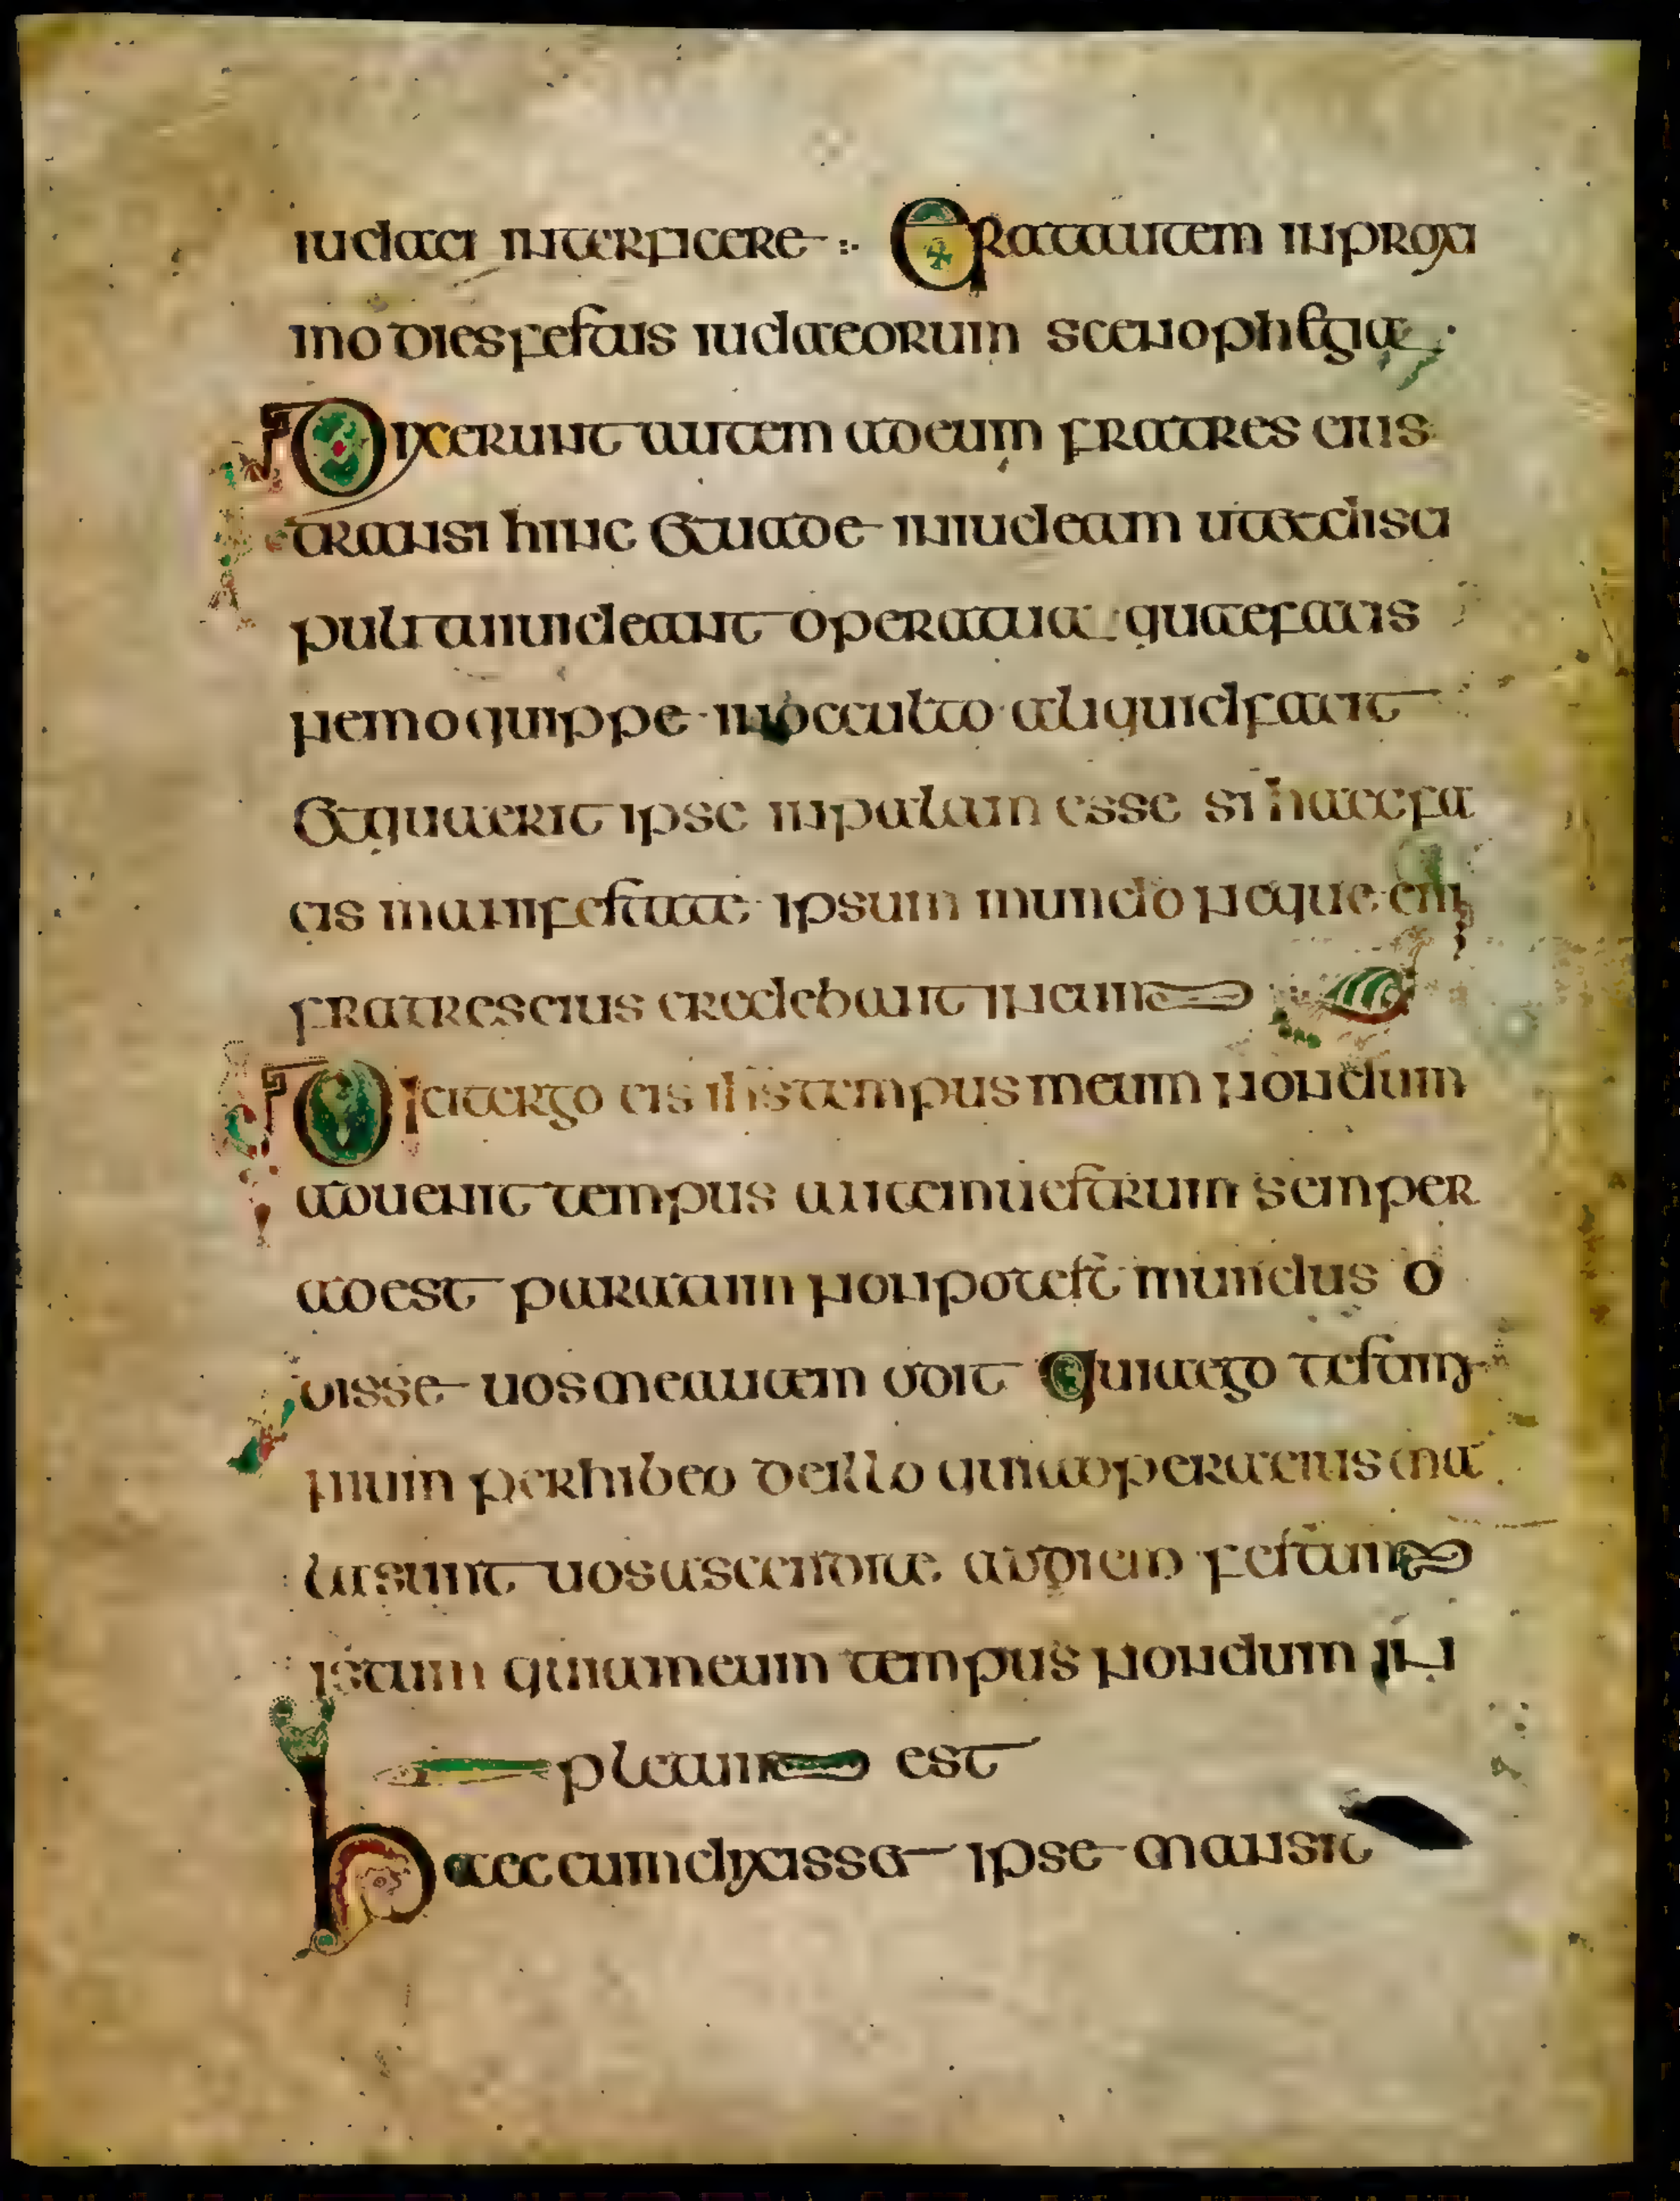 iudaei interficere :· Erat autem in proxi
mo dies festus iudaeorum scenophegia ·
Dixerunt autem ad eum fratres eius
transi hinc et uade in iudeam ut et disci
puli tui uideant opera tua quae facis
nemo quippe in occulto aliquid facit
et quaerit ipse in palam esse si haec fa
cis manifesta te ipsum mundo neque eni
fratres eius credebant in eum
Dicit ergo eis ihs tempus meum nondum
aduenit tempus autem uestrum semper
adest paratum non potest mundus o
disse uos me autem odit quia ego testim
nium perhibeo de illo quia opera eius ma
la sunt uos ascendite ad diem festum
istum quia meum tempus nondum in
pletum est
haec cum dixisset ipse mansit